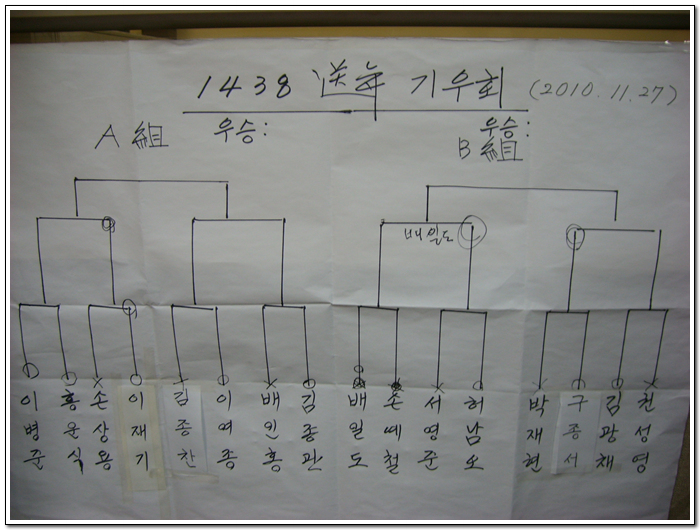 1438 送年 기우회 (2010.11.27)
A 組 우승: 우승:
B 組
배일도
이병준
홍운식
손상용
이재기
김종찬
이여종
배인홍
김종관
배일도
손예철
서영준
허남오
박재현
구종서
김광채
천성영